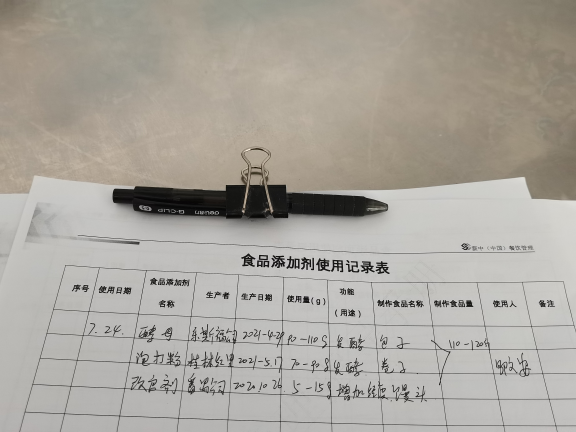 deli G-CLIP
餐饮管理
食品添加剂使用记录表
序号 使用日期 食品添加剂名称 生产者 生产日期 使用量(g) 功能(用途) 制作食品名称 制作食品量 使用人 备注
7.24. 酵母 2021-4-29 90-110g 发酵 包子 110-120g
泡打粉 桂林红星 2021-5.17 70-90g 发酵 卷子
改良剂 2020.10.26 5-15g 增加 馒头